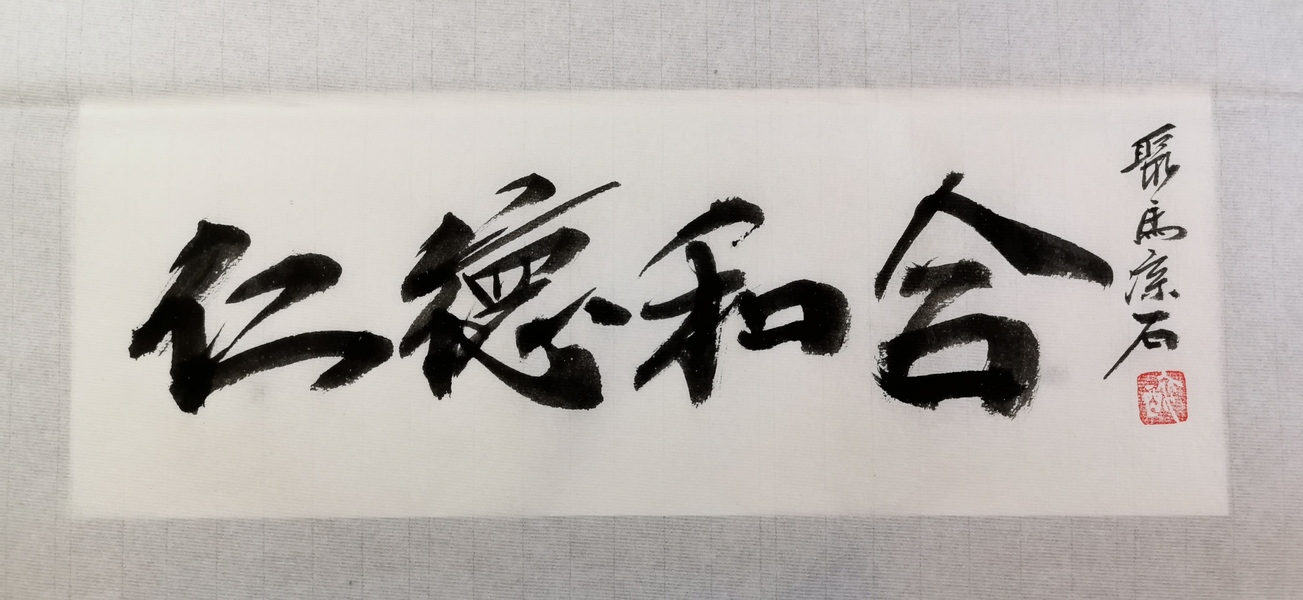 仁德和合
聚馬凉石